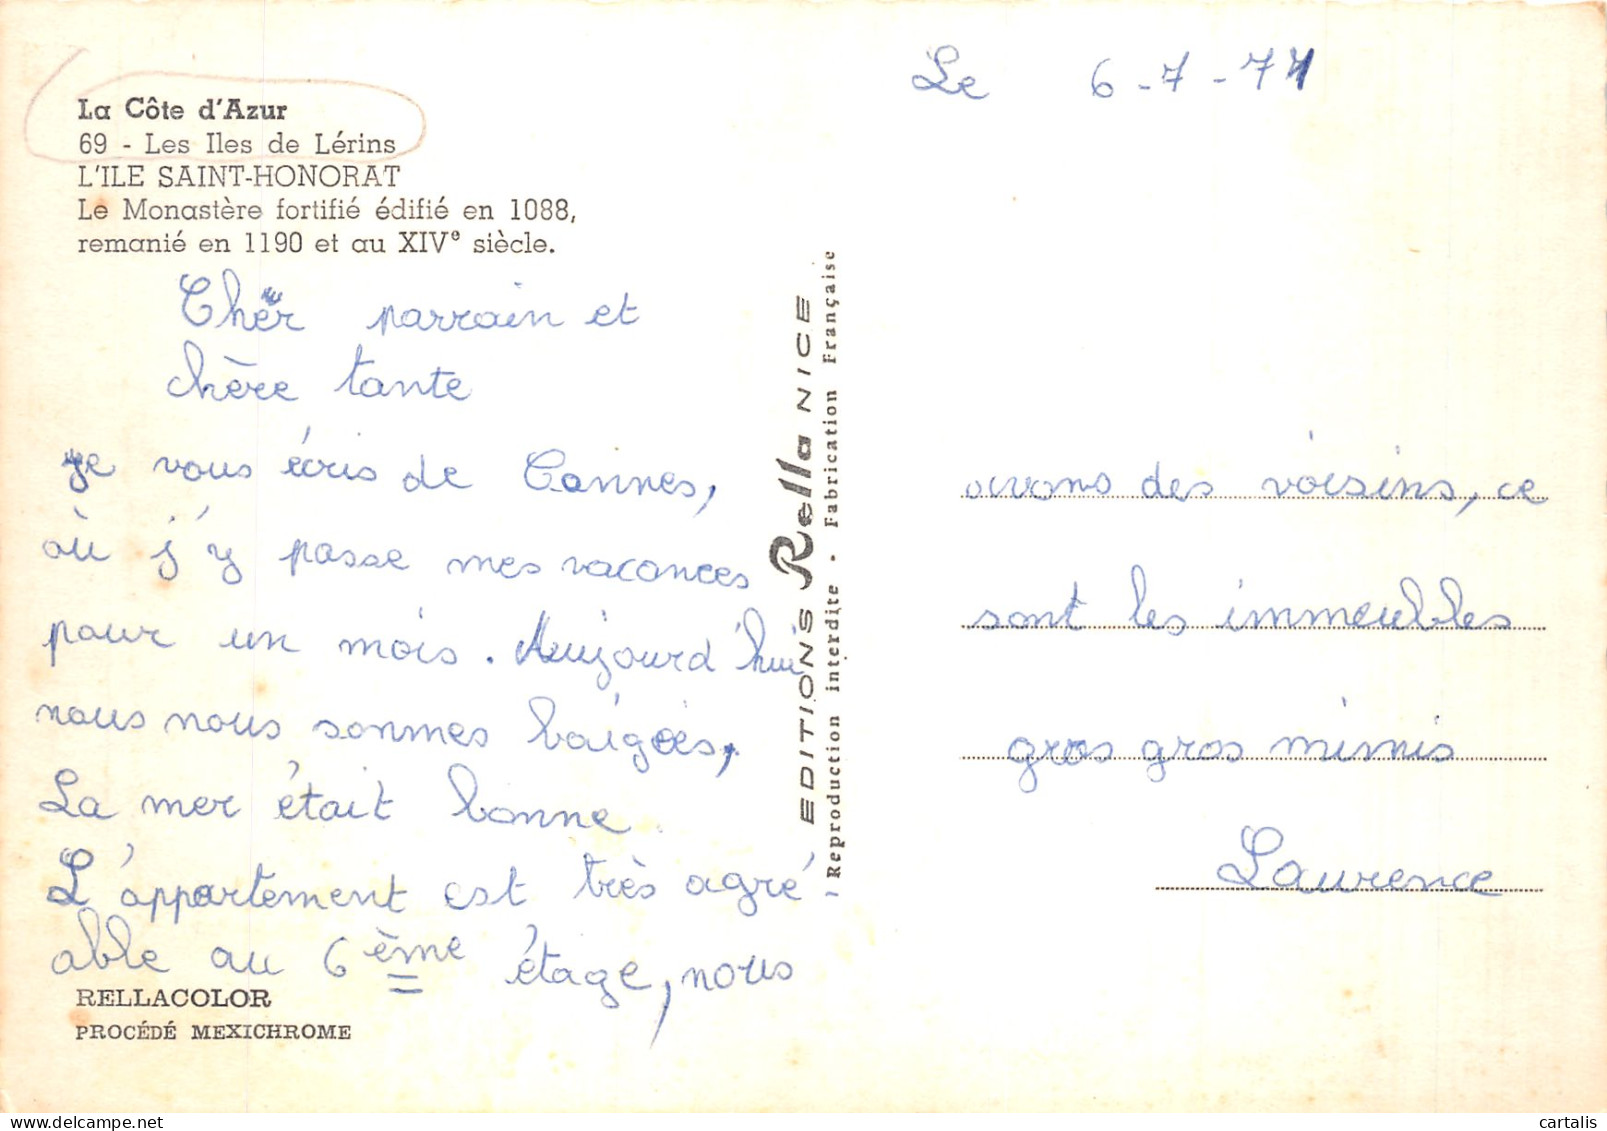 La Côte d'Azur
69 - Les Iles de Lérins
L'ILE SAINT-HONORAT
Le Monastère fortifié édifié en 1088,
remanié en 1190 et au XIVe siècle.
Cher parrain et
chère tante
je vous écris de Cannes,
où j'y passe mes vacances
pour un mois. Aujourd'hui
nous nous sommes baigées,
La mer était bonne.
L'appartement est très agré
able au 6ème étage, nous
RELLACOLOR
PROCÉDÉ MEXICHROME
EDITIONS Rella NICE
Reproduction interdite - Fabrication Française
Le 6-7-77
avons des voisins, ce
sont les immeubles
gros gros mimis
Laurence
cartalis